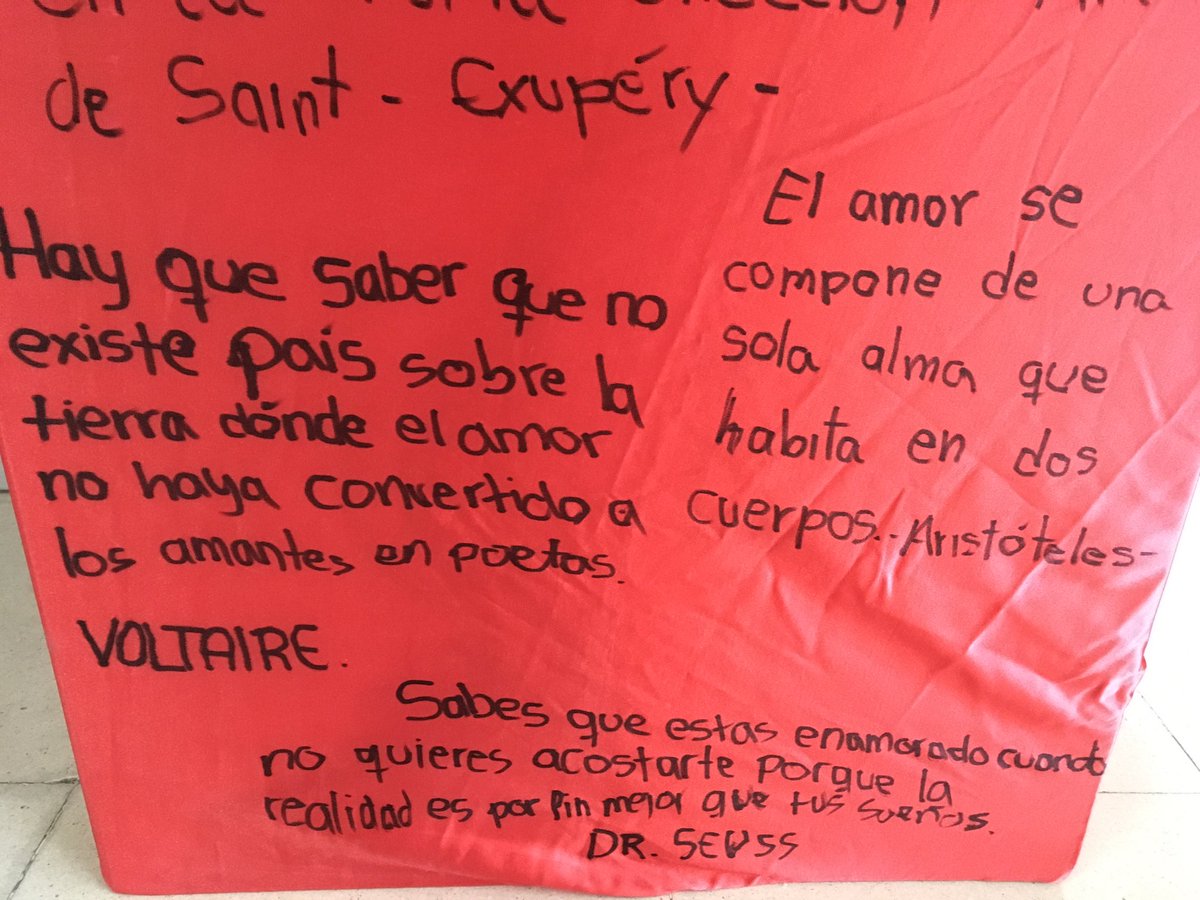 en la
de Saint - Exupéry -
Hay que saber que no
existe país sobre la
tierra dónde el amor
no haya convertido a
los amantes en poetas.
VOLTAIRE.
El amor se
compone de una
sola alma que
habita en dos
cuerpos.. Aristóteles-
Sabes que estas enamorado cuando
no quieres acostarte porque la
realidad es por fin mejor que tus sueños.
DR. SEUSS